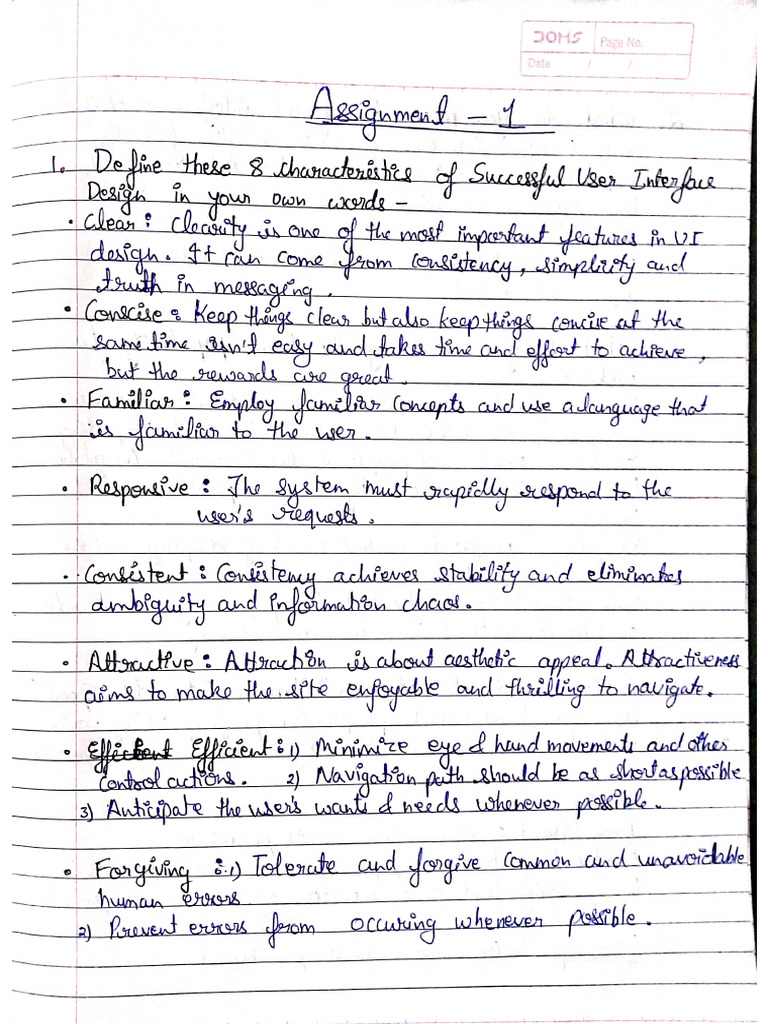 DOMS
Page No.
Date / /
Assignment - 1
1. Define these 8 characteristics of Successful User Interface
Design in your own words -
• Clear : Clearity is one of the most important features in UI
design. It can come from consistency, simplicity and
truth in messaging.
• Conscise : Keep things clear but also keep things concise at the
same time isn't easy and takes time and effort to achieve,
but the rewards are great.
• Familiar : Employ familiar concepts and use a language that
is familiar to the user.
• Responsive : The system must rapidly respond to the
user's requests.
• Consistent : Consistency achieves stability and eliminates
ambiguity and information chaos.
• Attractive : Attraction is about aesthetic appeal. Attractiveness
aims to make the site enjoyable and thrilling to navigate.
• Efficient : 1) Minimize eye & hand movements and other
control actions. 2) Navigation path should be as short as possible
3) Anticipate the user's wants & needs whenever possible.
• Forgiving : 1) Tolerate and forgive common and unavoidable
human errors
2) Prevent errors from occuring whenever possible.